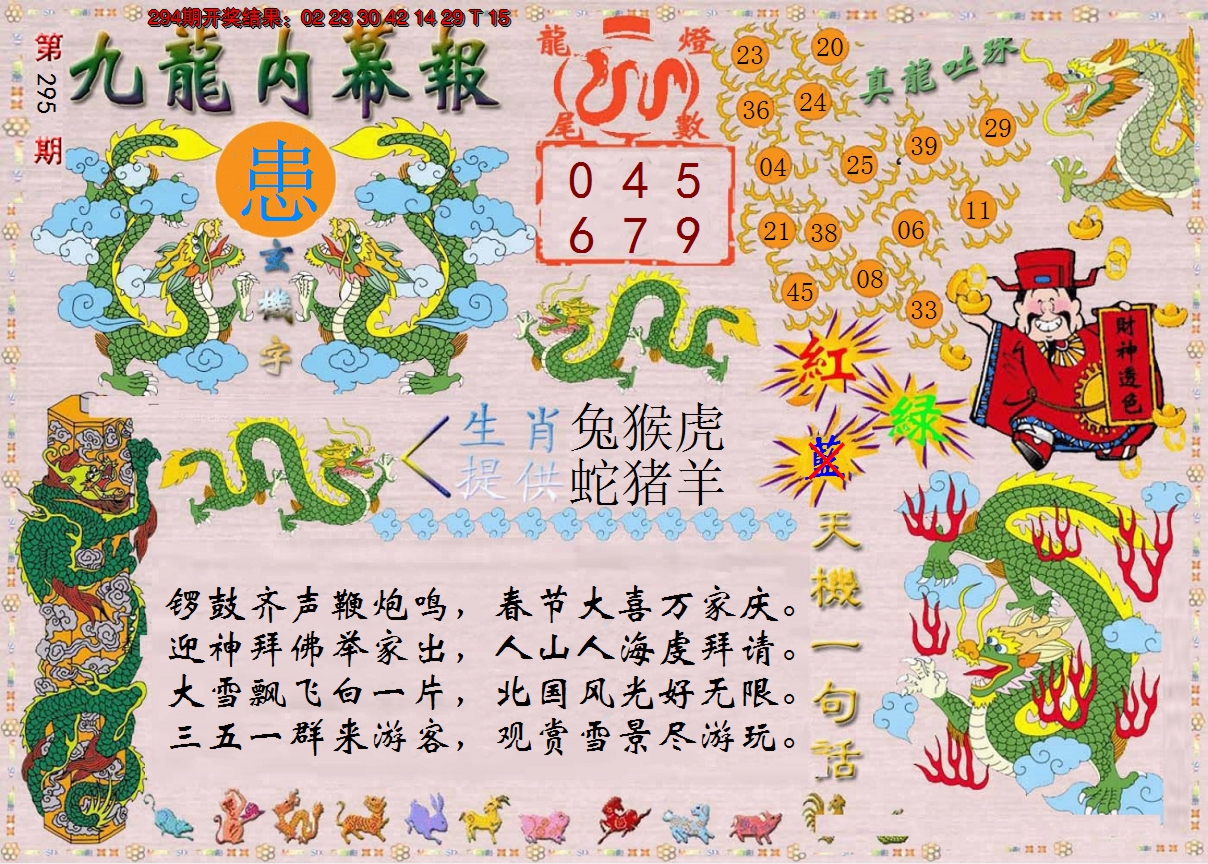 294期开奖结果：02 23 30 42 14 29 T 15
第295期
九龍內幕報
患
玄機字
龍燈
尾數
0 4 5
6 7 9
真龍吐珠
23 20
36 24
39 29
04 25
11
21 38 06
45 08
33
財神透色
紅
綠
藍
生肖 兔猴虎
提供 蛇猪羊
锣鼓齐声鞭炮鸣，春节大喜万家庆。
迎神拜佛举家出，人山人海虔拜请。
大雪飘飞白一片，北国风光好无限。
三五一群来游客，观赏雪景尽游玩。
天機一句話